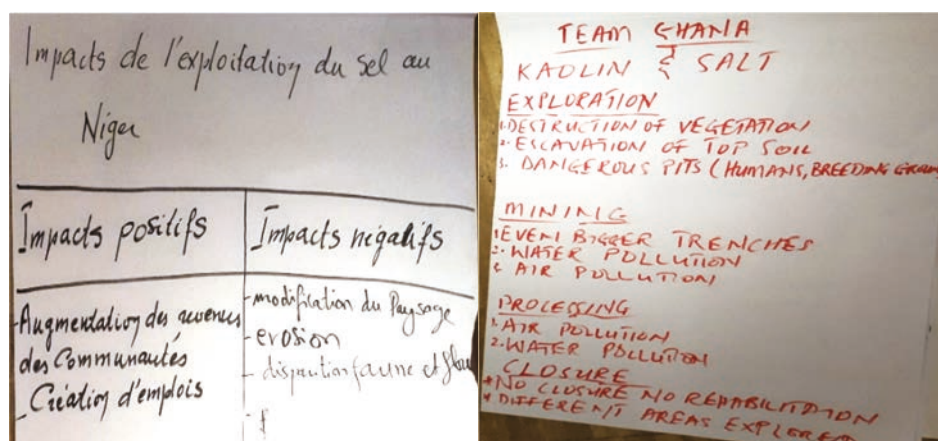 Impacts de l'exploitation du sel au
Niger
Impacts positifs
Augmentation des revenus
des Communautés
- Création d'emplois
Impacts négatifs
- modification du Paysage
- erosion
- disparition faune et
TEAM GHANA
KAOLIN & SALT
EXPLORATION
1. DESTRUCTION OF VEGETATION
2. ESCAVATION OF TOP SOIL
3. DANGEROUS PITS (HUMANS, BREEDING
MINING
1 EVEN BIGGER TRENCHES
2. WATER POLLUTION
& AIR POLLUTION
PROCESSING
1. AIR POLLUTION
2. WATER POLLUTION
CLOSURE
* NO CLOSURE NO REHABILITATION
* DIFFERENT AREAS